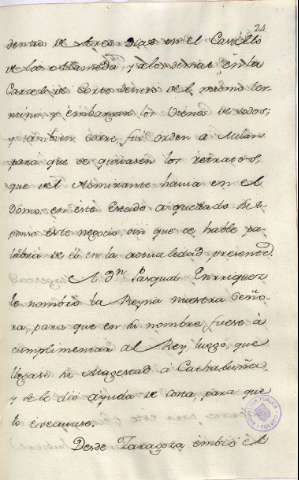 24
dentro de tres dias en el Castillo
de la Alameda, y a los demas en la
Carcel de Corte dentro de el mismo ter-
mino, y embargar los vienes de todos,
y tambien corre fue orden a Milan
para que se quitasen los retratos,
que del Almirante havia en el
Domo, en este estado a quedado het
como este negocio sin que se hable pa-
labra de él en la actualidad presente.
A Dn Pasqual Enriquez
le nombró la Reyna nuestra Seño-
ra, para que en su nombre fuese à
cumplimentar al Rey luego, que
llegase su Magestad à Cathaluña,
y se le dió ayuda de costa, para que
lo executase.
Desde Zaragoza embió el